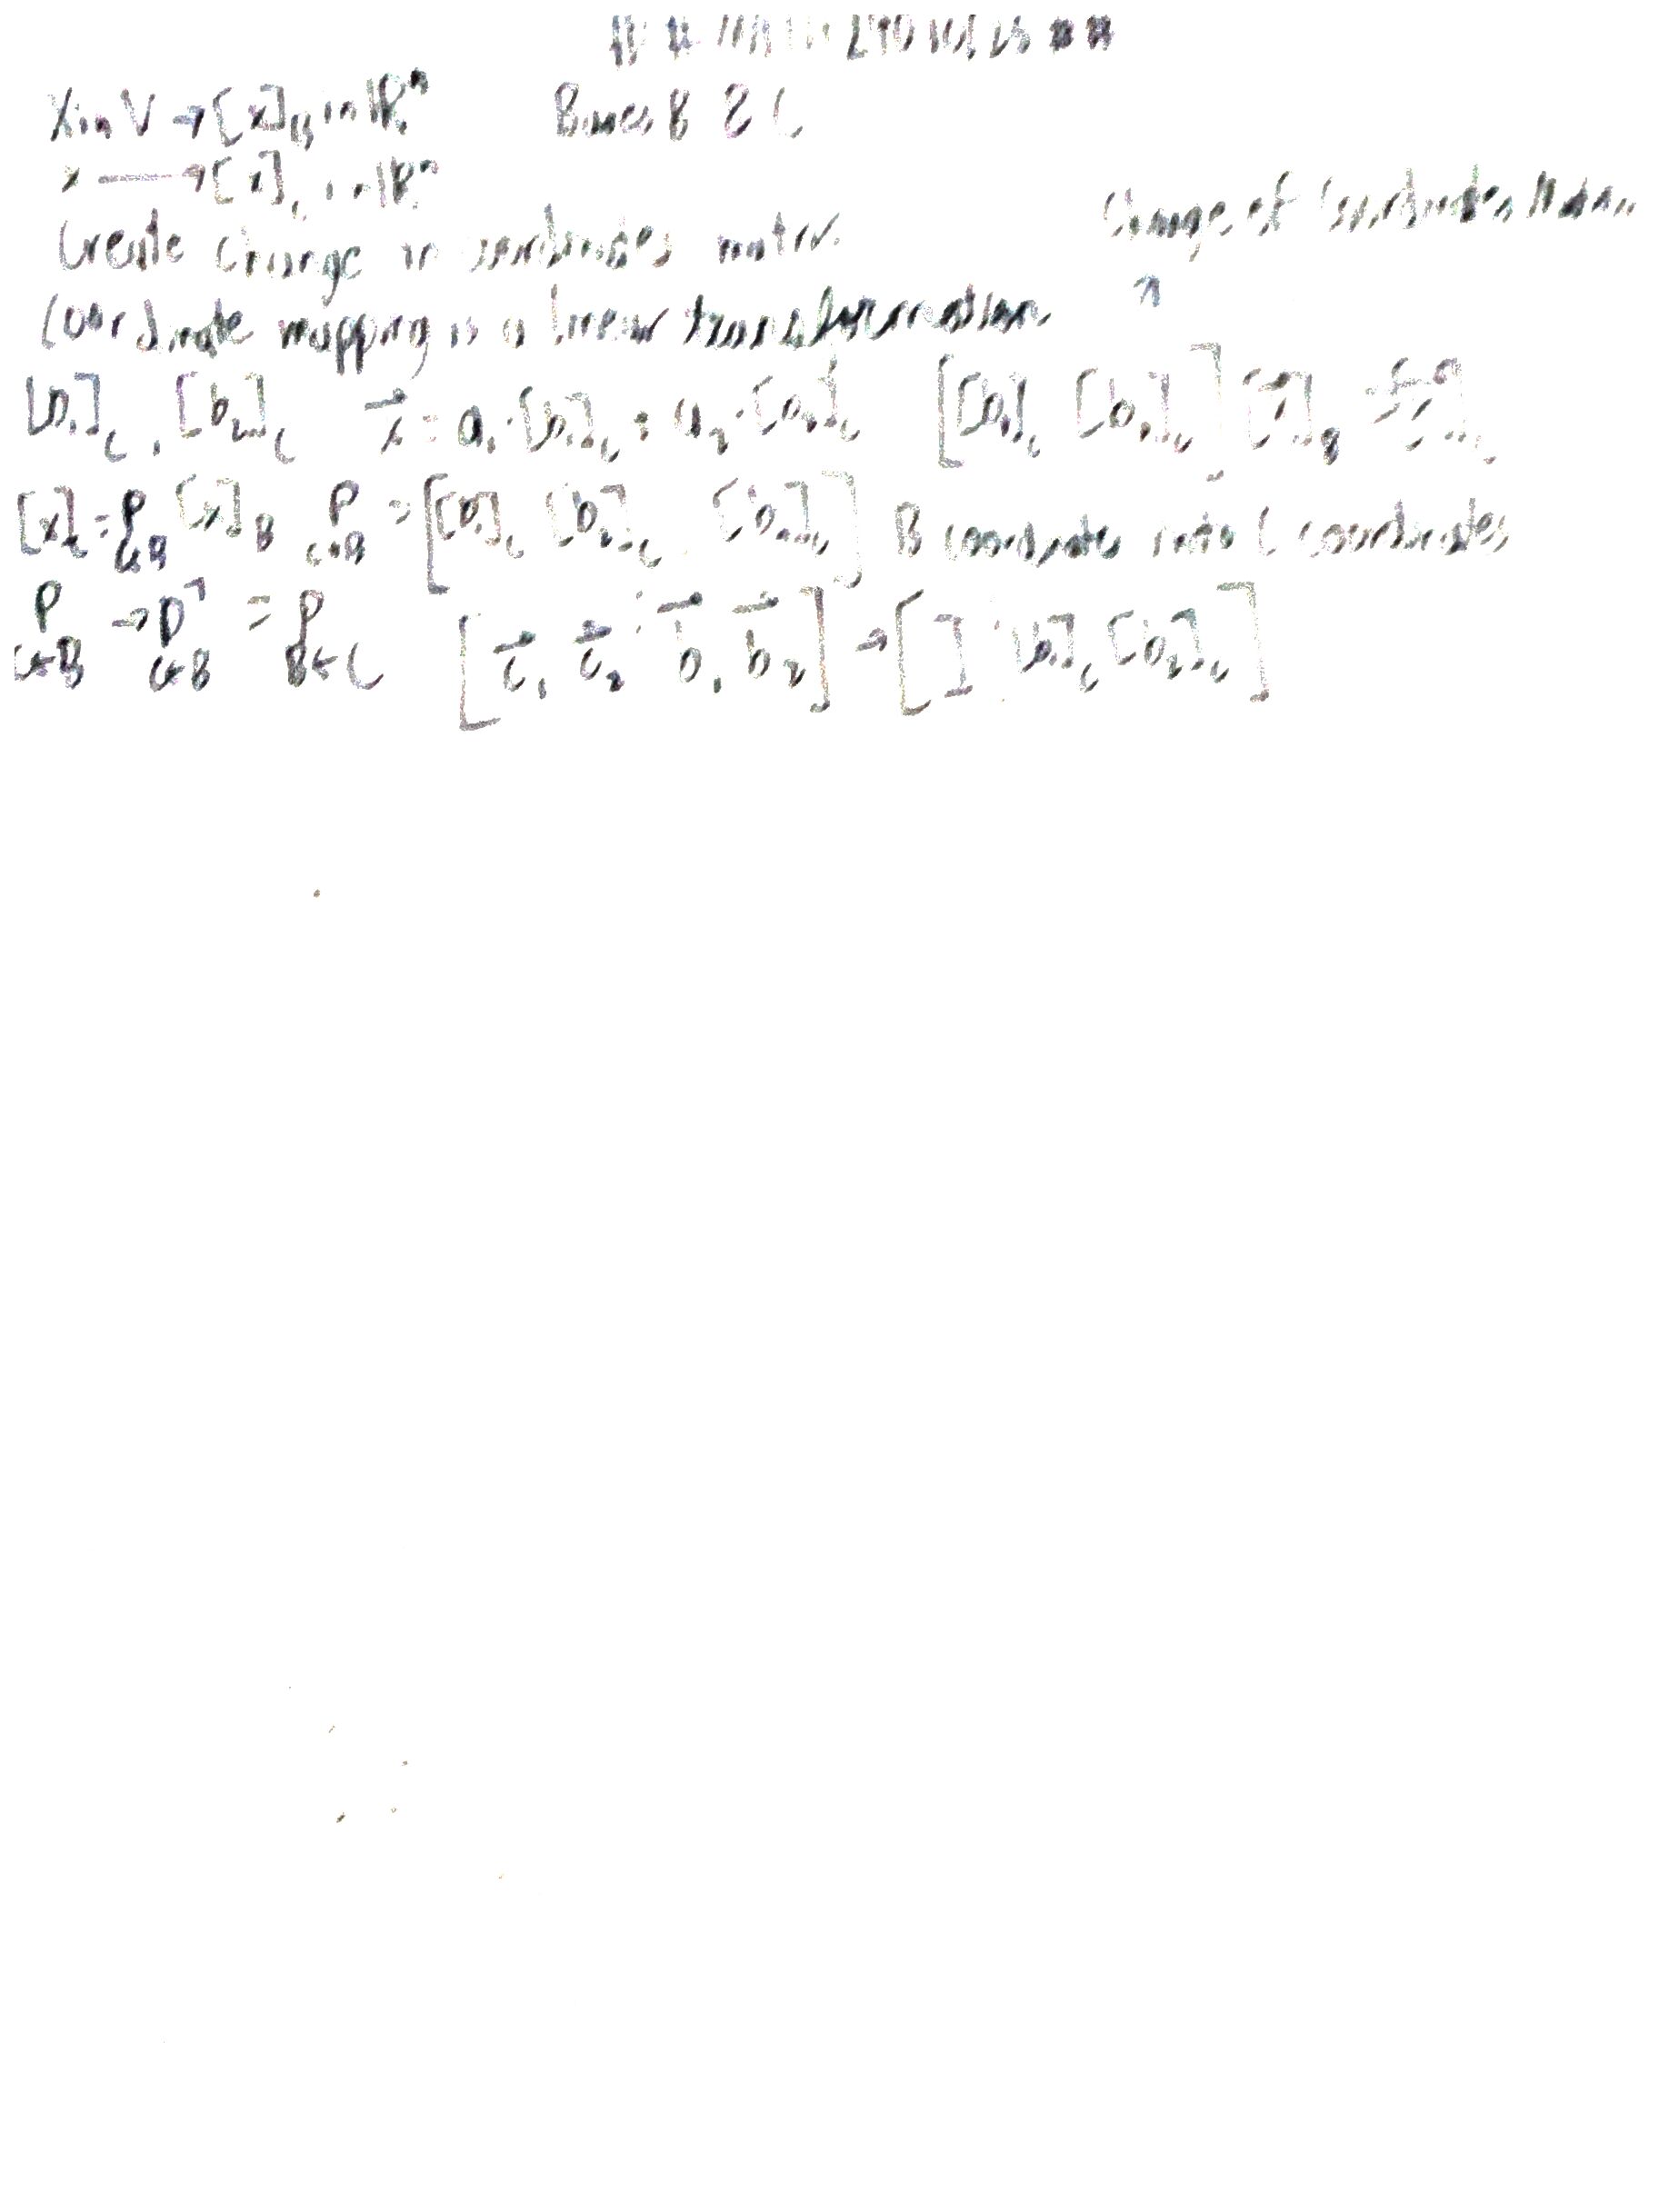 X in V → [x]_B in ℝⁿ    Bases B & C
x ⟶ [x]_C in ℝⁿ
Create change in coordinates matrix    Change of Coordinates Matrix
Coordinate mapping is a linear transformation ↑
[b₁]_C, [b₂]_C    x⃗ = a₁·[b₁]_C + a₂·[b₂]_C    [[b₁]_C [b₂]_C] [x⃗]_B = [x⃗]_C
[x]_C = P_{C←B} [x]_B    P_{C←B} = [[b₁]_C [b₂]_C … [b_n]_C]    B coordinates into C coordinates
P_{C←B} → P⁻¹_{C←B} = P_{B←C}    [c⃗₁ c⃗₂ ⋮ b⃗₁ b⃗₂] → [I ⋮ [b₁]_C [b₂]_C]